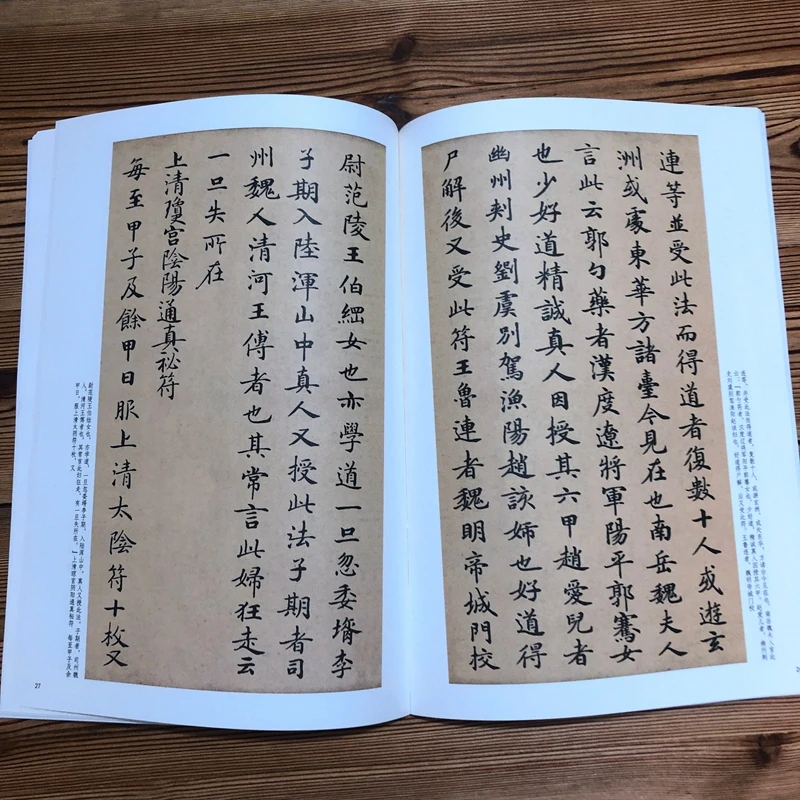 連等並受此法而得道者復數十人或遊玄
洲或處東華方諸臺今見在也南岳魏夫人
言此云郭勺藥者漢度遼將軍陽平郭騫女
也少好道精誠真人因授其六甲趙愛兒者
幽州刾史劉虞別駕漁陽趙該姊也好道得
尸解後又受此符王魯連者魏明帝城門校
尉范陵王伯綱女也亦學道一旦忽委壻李
子期入陸渾山中真人又授此法子期者司
州魏人清河王傅者也其常言此婦狂走云
一旦失所在
上清瓊宮陰陽通真祕符
每至甲子及餘甲日服上清太陰符十枚又
27